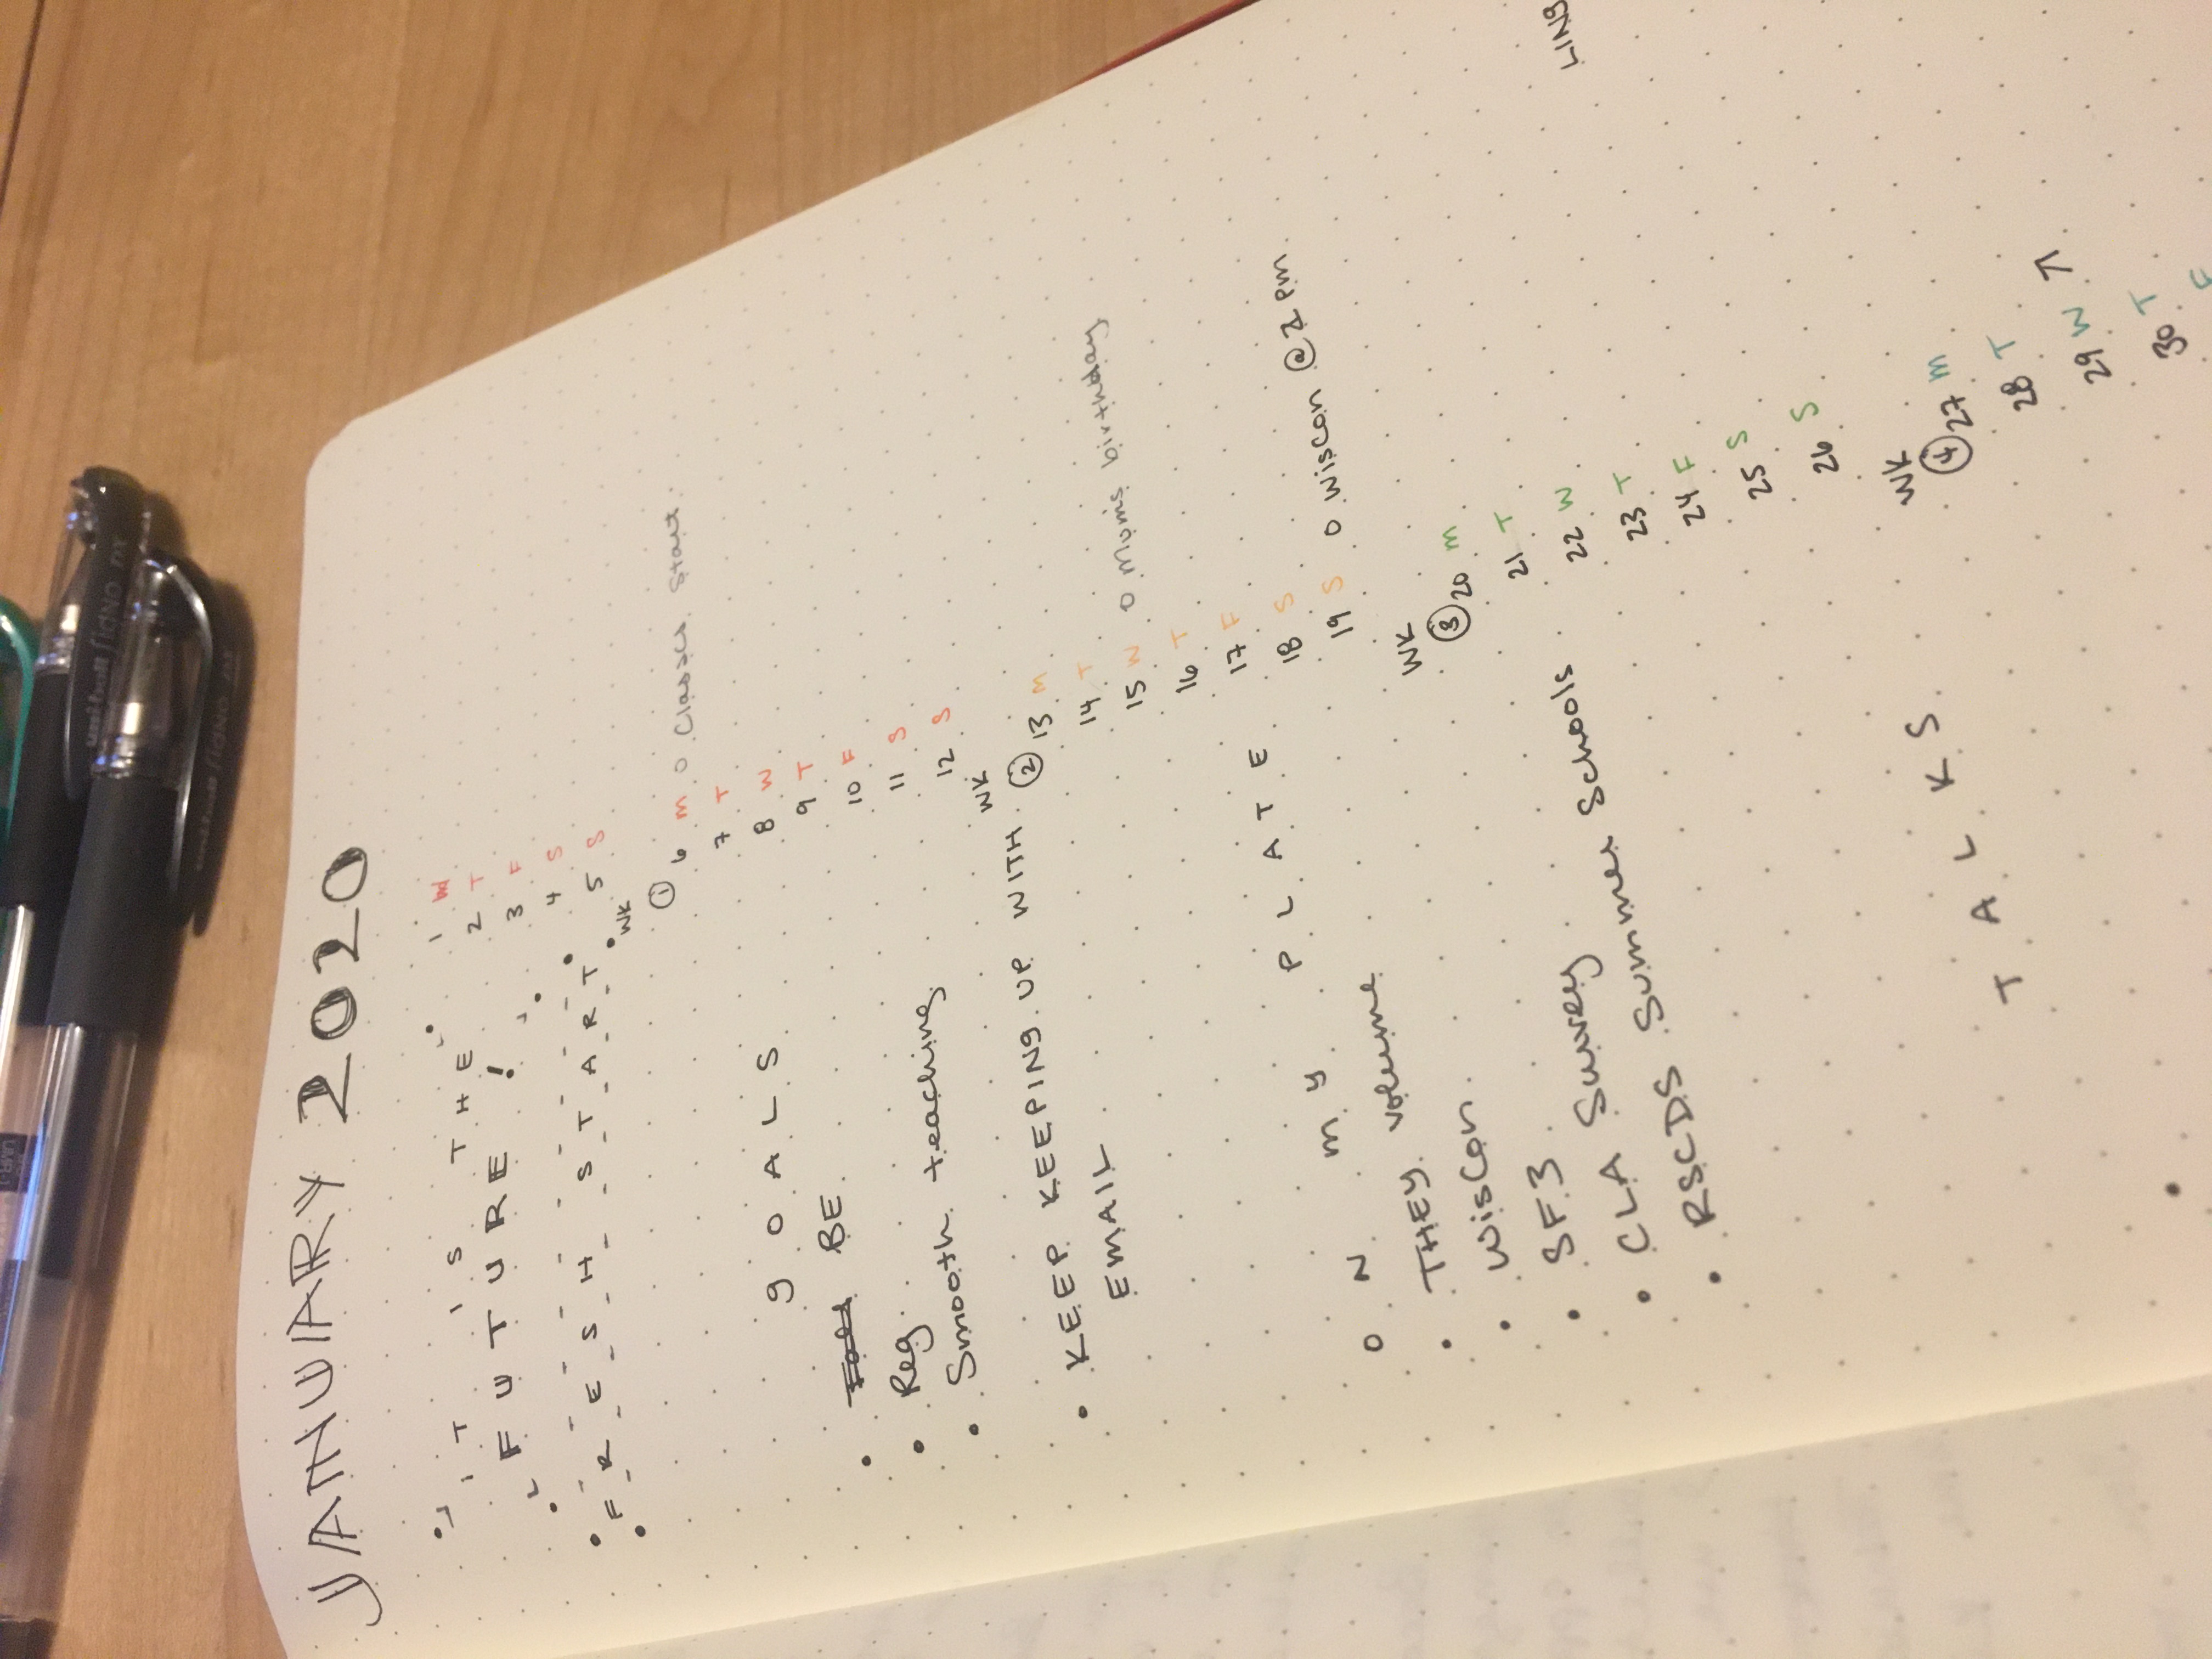 uni-ball SIGNO DX
uni-ball SIGNO DX
JANUARY 2020
IT IS THE
FUTURE!
FRESH START
GOALS
• BE
• Reg
• Smooth teaching
• KEEP KEEPING UP WITH
EMAIL
ON MY PLATE
• THEY volume
• WisCon
• SF3
• CLA Survey
• RSCDS Summer Schools
TALKS
•
1 W
2 T
3 F
4 S
5 S
WK
① 6 M o Classes start
7 T
8 W
9 T
10 F
11 S
12 S
WK
② 13 M
14 T
15 W o Mum's birthday
16 T
17 F
18 S
19 S o WisCon @ 1 PM
WK
③ 20 M
21 T
22 W
23 T
24 F
25 S
26 S
WK
④ 27 M
28 T
29 W ↗
30 T
F
LING